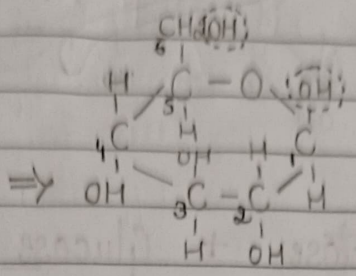 CH2OH
6
H C - O OH
5
C H H C
4 OH 1
⇒ OH C - C H
3 2
H OH